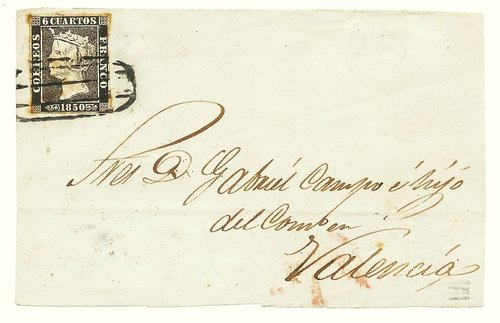 6 CUARTOS
CORREOS
FRANCO
1850
Sres D. Gabriél Campo é hijo
del Com.o en
Valencia